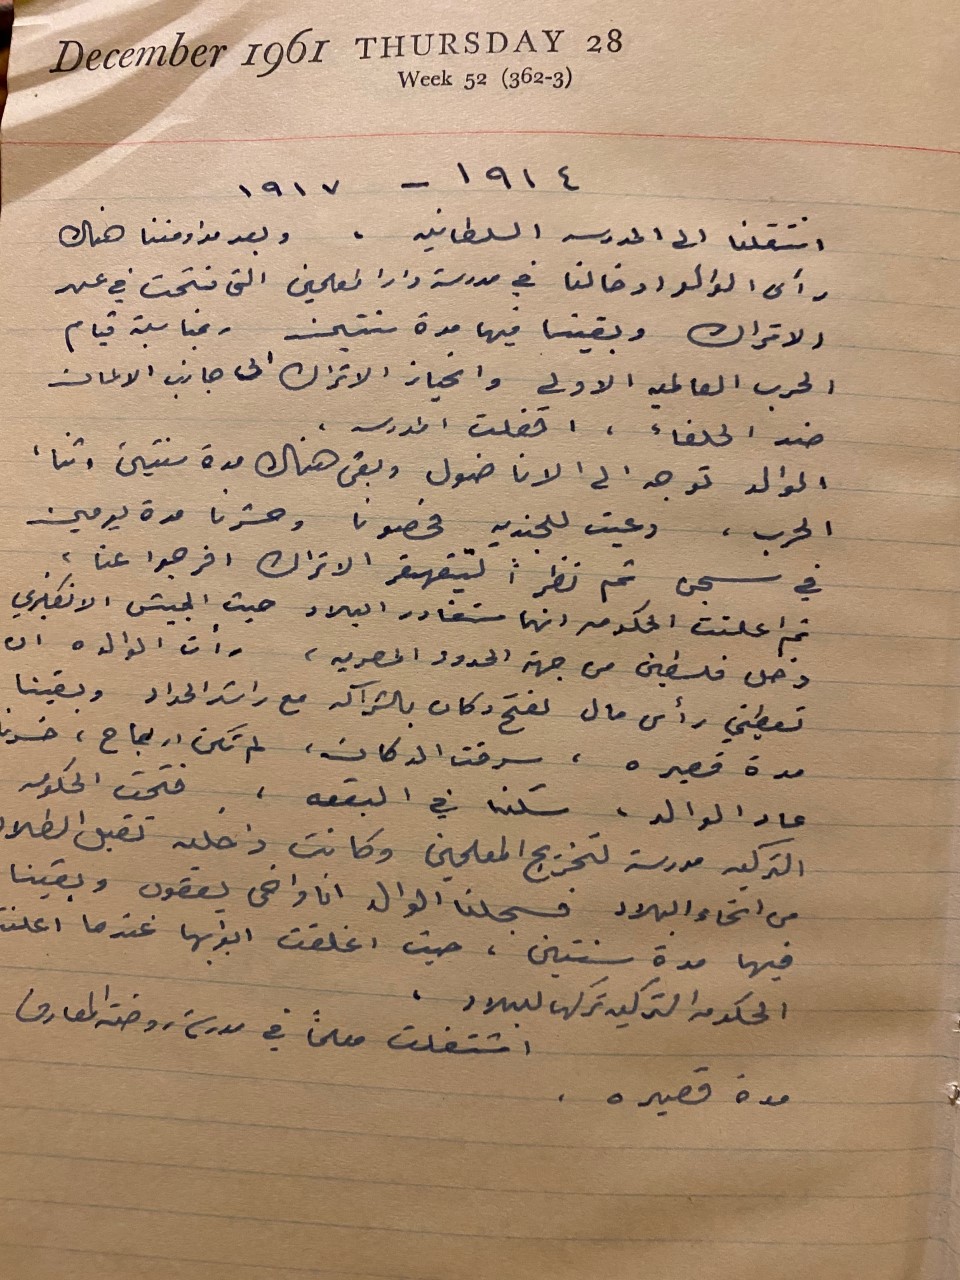 December 1961 THURSDAY 28
Week 52 (362-3)
١٩١٤ – ١٩١٧
انتقلنا الى المدرسه السلطانيه ، وبعد مداومتنا هناك
رأى الوالد ادخالنا في مدرسة دار المعلمين التي فتحت في عهد
الاتراك وبقينا فيها مدة سنتين وبمناسبة قيام
الحرب العالميه الاولى وانحياز الاتراك الى جانب الالمان
ضد الحلفاء ، اقفلت المدرسه ،
الوالد توجه الى الاناضول وبقي هناك مدة سنتين اثناء
الحرب ، دعيت للجنديه فحصونا وحشرنا مدة يومين
في سجن ثم نظراً لتقهقر الاتراك افرجوا عنا ،
ثم اعلنت الحكومه انها ستغادر البلاد حيث الجيش الانكليزي
دخل فلسطين من جهة الحدود المصريه ، رأت الوالده ان
تعطيني رأس مال لفتح دكان بالشراكه مع راشد الحداد وبقينا
مدة قصيره ، سرقت الدكان ، لم تكن ارباح ، خسرنا
عاد الوالد ، سكنا في البقعه ، فتحت الحكومه
التركيه مدرسة لتخريج المعلمين وكانت داخليه تقبل الطلاب
من انحاء البلاد فسجلنا الوالد انا واخي يعقوب وبقينا
فيها مدة سنتين ، حيث اغلقت ابوابها عندما اعلنت
الحكومه التركيه تركها للبلاد ،
اشتغلت معلماً في مدرسة روضة المعارف
مدة قصيره .